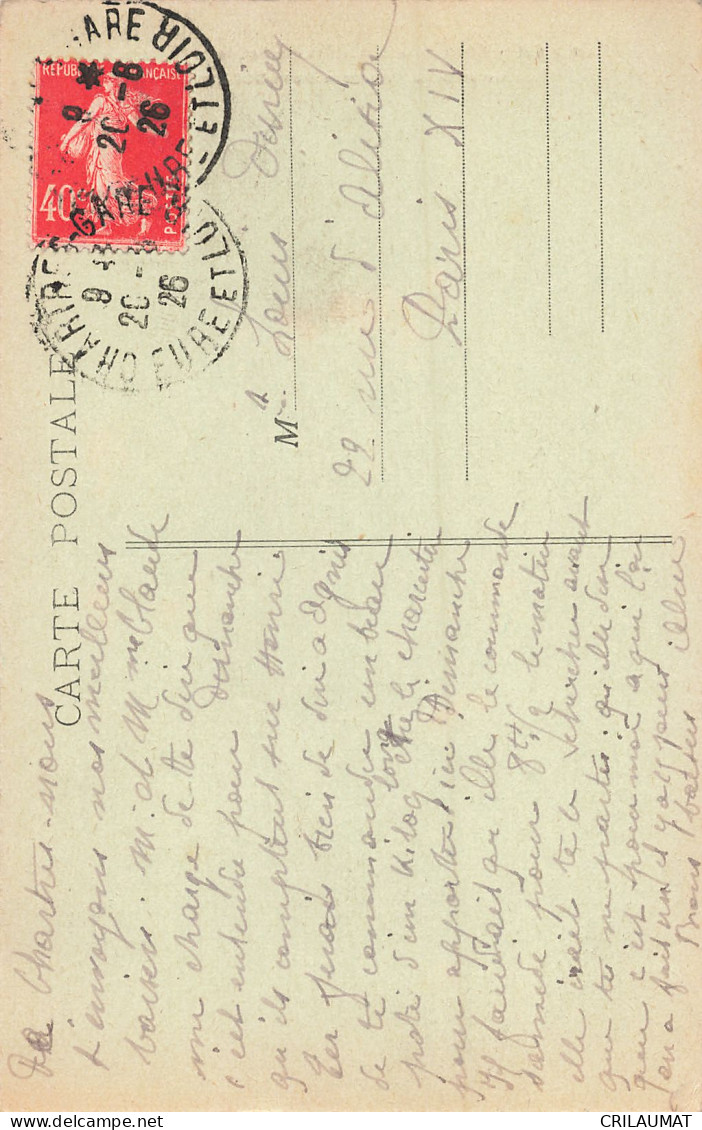 CARTE POSTALE
RÉPUBLIQUE FRANÇAISE
40c
POSTES
CHARTRES-GARE
9
20-6
26
EURE ET LOIR
CHARTRES-GARE
9
20-
26
EURE ET LOIR
M Louis
22 rue d'Alésia
Paris XIV
De Chartres nous
t'envoyons nos meilleurs
baisers. M. et Mme Claude
me charge de te dire que
c'est entendu pour Dimanche
qu'ils comptent sur Henri
bien de dire a
de te commander un beau
pâté d'un kilog long chez le charcutier
pour apporter ici Dimanche
Il faudrait qu'elle le commande
samedi pour 8h1/2 le matin
elle irait te le chercher avant
que tu ne partes qu'elle dise
que c'est pour moi
fait pour elle
Bons baisers
CRILAUMAT